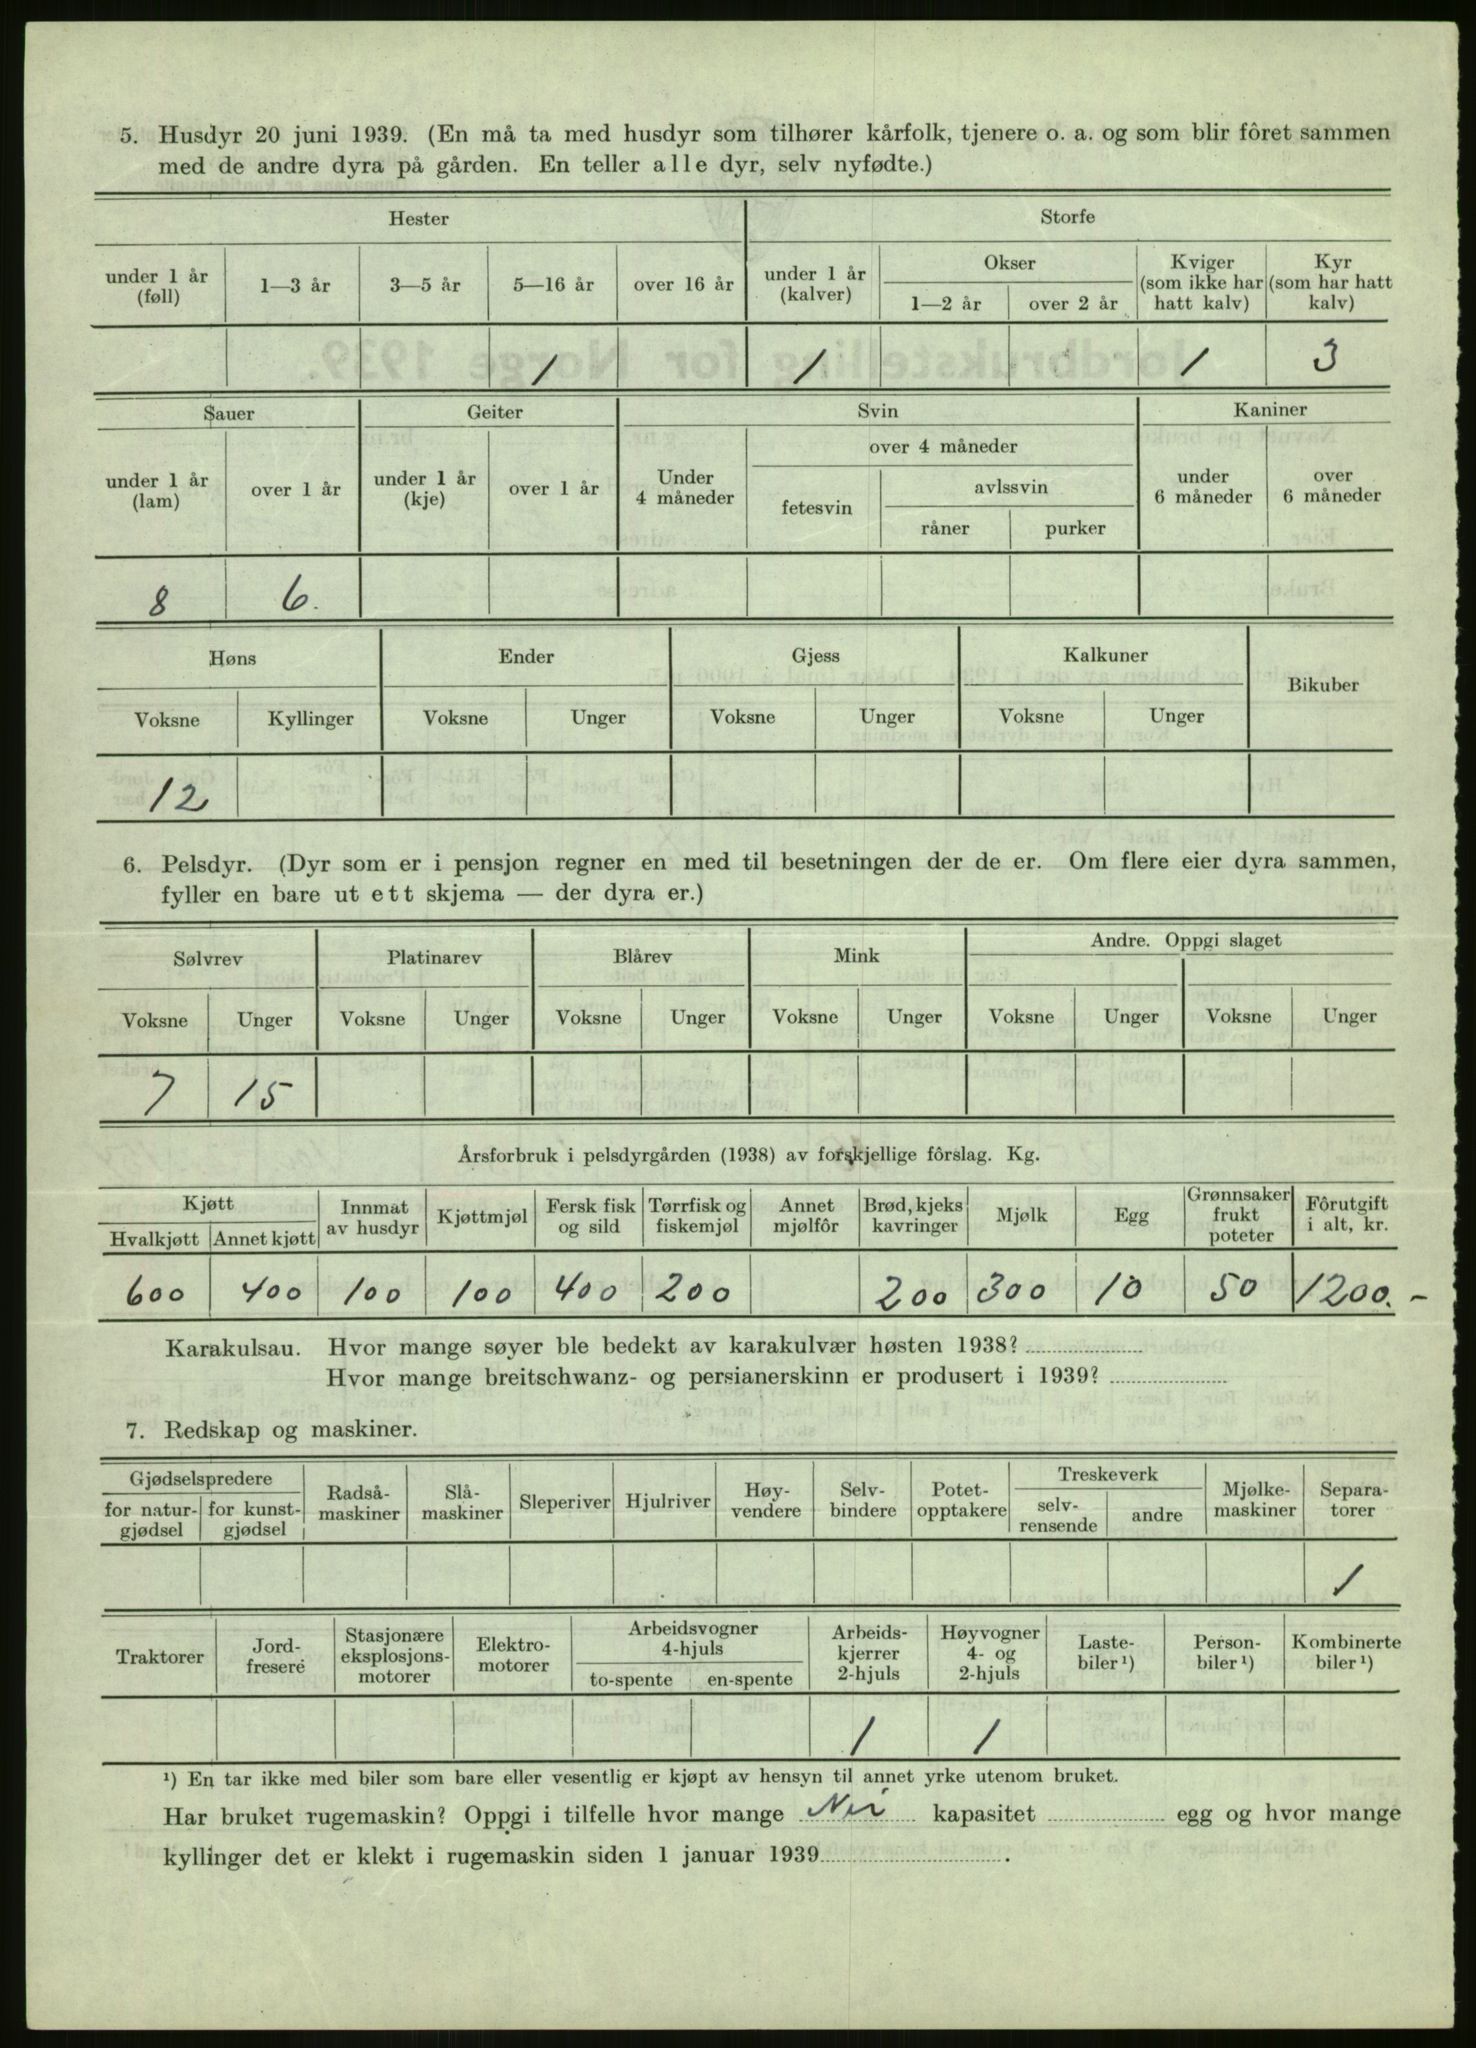 5. Husdyr 20 juni 1939. (En må ta med husdyr som tilhører kårfolk, tjenere o. a. og som blir fôret sammen
med de andre dyra på gården. En teller alle dyr, selv nyfødte.)
Hester Storfe
under 1 år (føll) 1—3 år 3—5 år 5—16 år over 16 år under 1 år (kalver) Okser 1—2 år over 2 år Kviger (som ikke har hatt kalv) Kyr (som har hatt kalv)
1 1 1 3
Sauer Geiter Svin Kaniner
under 1 år (lam) over 1 år under 1 år (kje) over 1 år Under 4 måneder over 4 måneder fetesvin avlssvin råner purker under 6 måneder over 6 måneder
8 6.
Høns Ender Gjess Kalkuner Bikuber
Voksne Kyllinger Voksne Unger Voksne Unger Voksne Unger
12
6. Pelsdyr. (Dyr som er i pensjon regner en med til besetningen der de er. Om flere eier dyra sammen,
fyller en bare ut ett skjema — der dyra er.)
Sølvrev Platinarev Blårev Mink Andre. Oppgi slaget
Voksne Unger Voksne Unger Voksne Unger Voksne Unger Voksne Unger Voksne Unger
7 15
Årsforbruk i pelsdyrgården (1938) av forskjellige fôrslag. Kg.
Kjøtt Hvalkjøtt Annet kjøtt Innmat av husdyr Kjøttmjøl Fersk fisk og sild Tørrfisk og fiskemjøl Annet mjølfôr Brød, kjeks kavringer Mjølk Egg Grønnsaker frukt poteter Fôrutgift i alt, kr.
600 400 100 100 400 200 200 300 10 50 1200.-
Karakulsau. Hvor mange søyer ble bedekt av karakulvær høsten 1938?
Hvor mange breitschwanz- og persianerskinn er produsert i 1939?
7. Redskap og maskiner.
Gjødselspredere for natur-gjødsel for kunst-gjødsel Radså-maskiner Slå-maskiner Sleperiver Hjulriver Høy-vendere Selv-bindere Potet-opptakere Treskeverk selv-rensende andre Mjølke-maskiner Separa-torer
1
Traktorer Jord-fresere Stasjonære eksplosjons-motorer Elektro-motorer Arbeidsvogner 4-hjuls to-spente en-spente Arbeids-kjerrer 2-hjuls Høyvogner 4- og 2-hjuls Laste-biler ¹) Person-biler ¹) Kombinerte biler ¹)
1 1
¹) En tar ikke med biler som bare eller vesentlig er kjøpt av hensyn til annet yrke utenom bruket.
Har bruket rugemaskin? Oppgi i tilfelle hvor mange Nei kapasitet egg og hvor mange
kyllinger det er klekt i rugemaskin siden 1 januar 1939 .